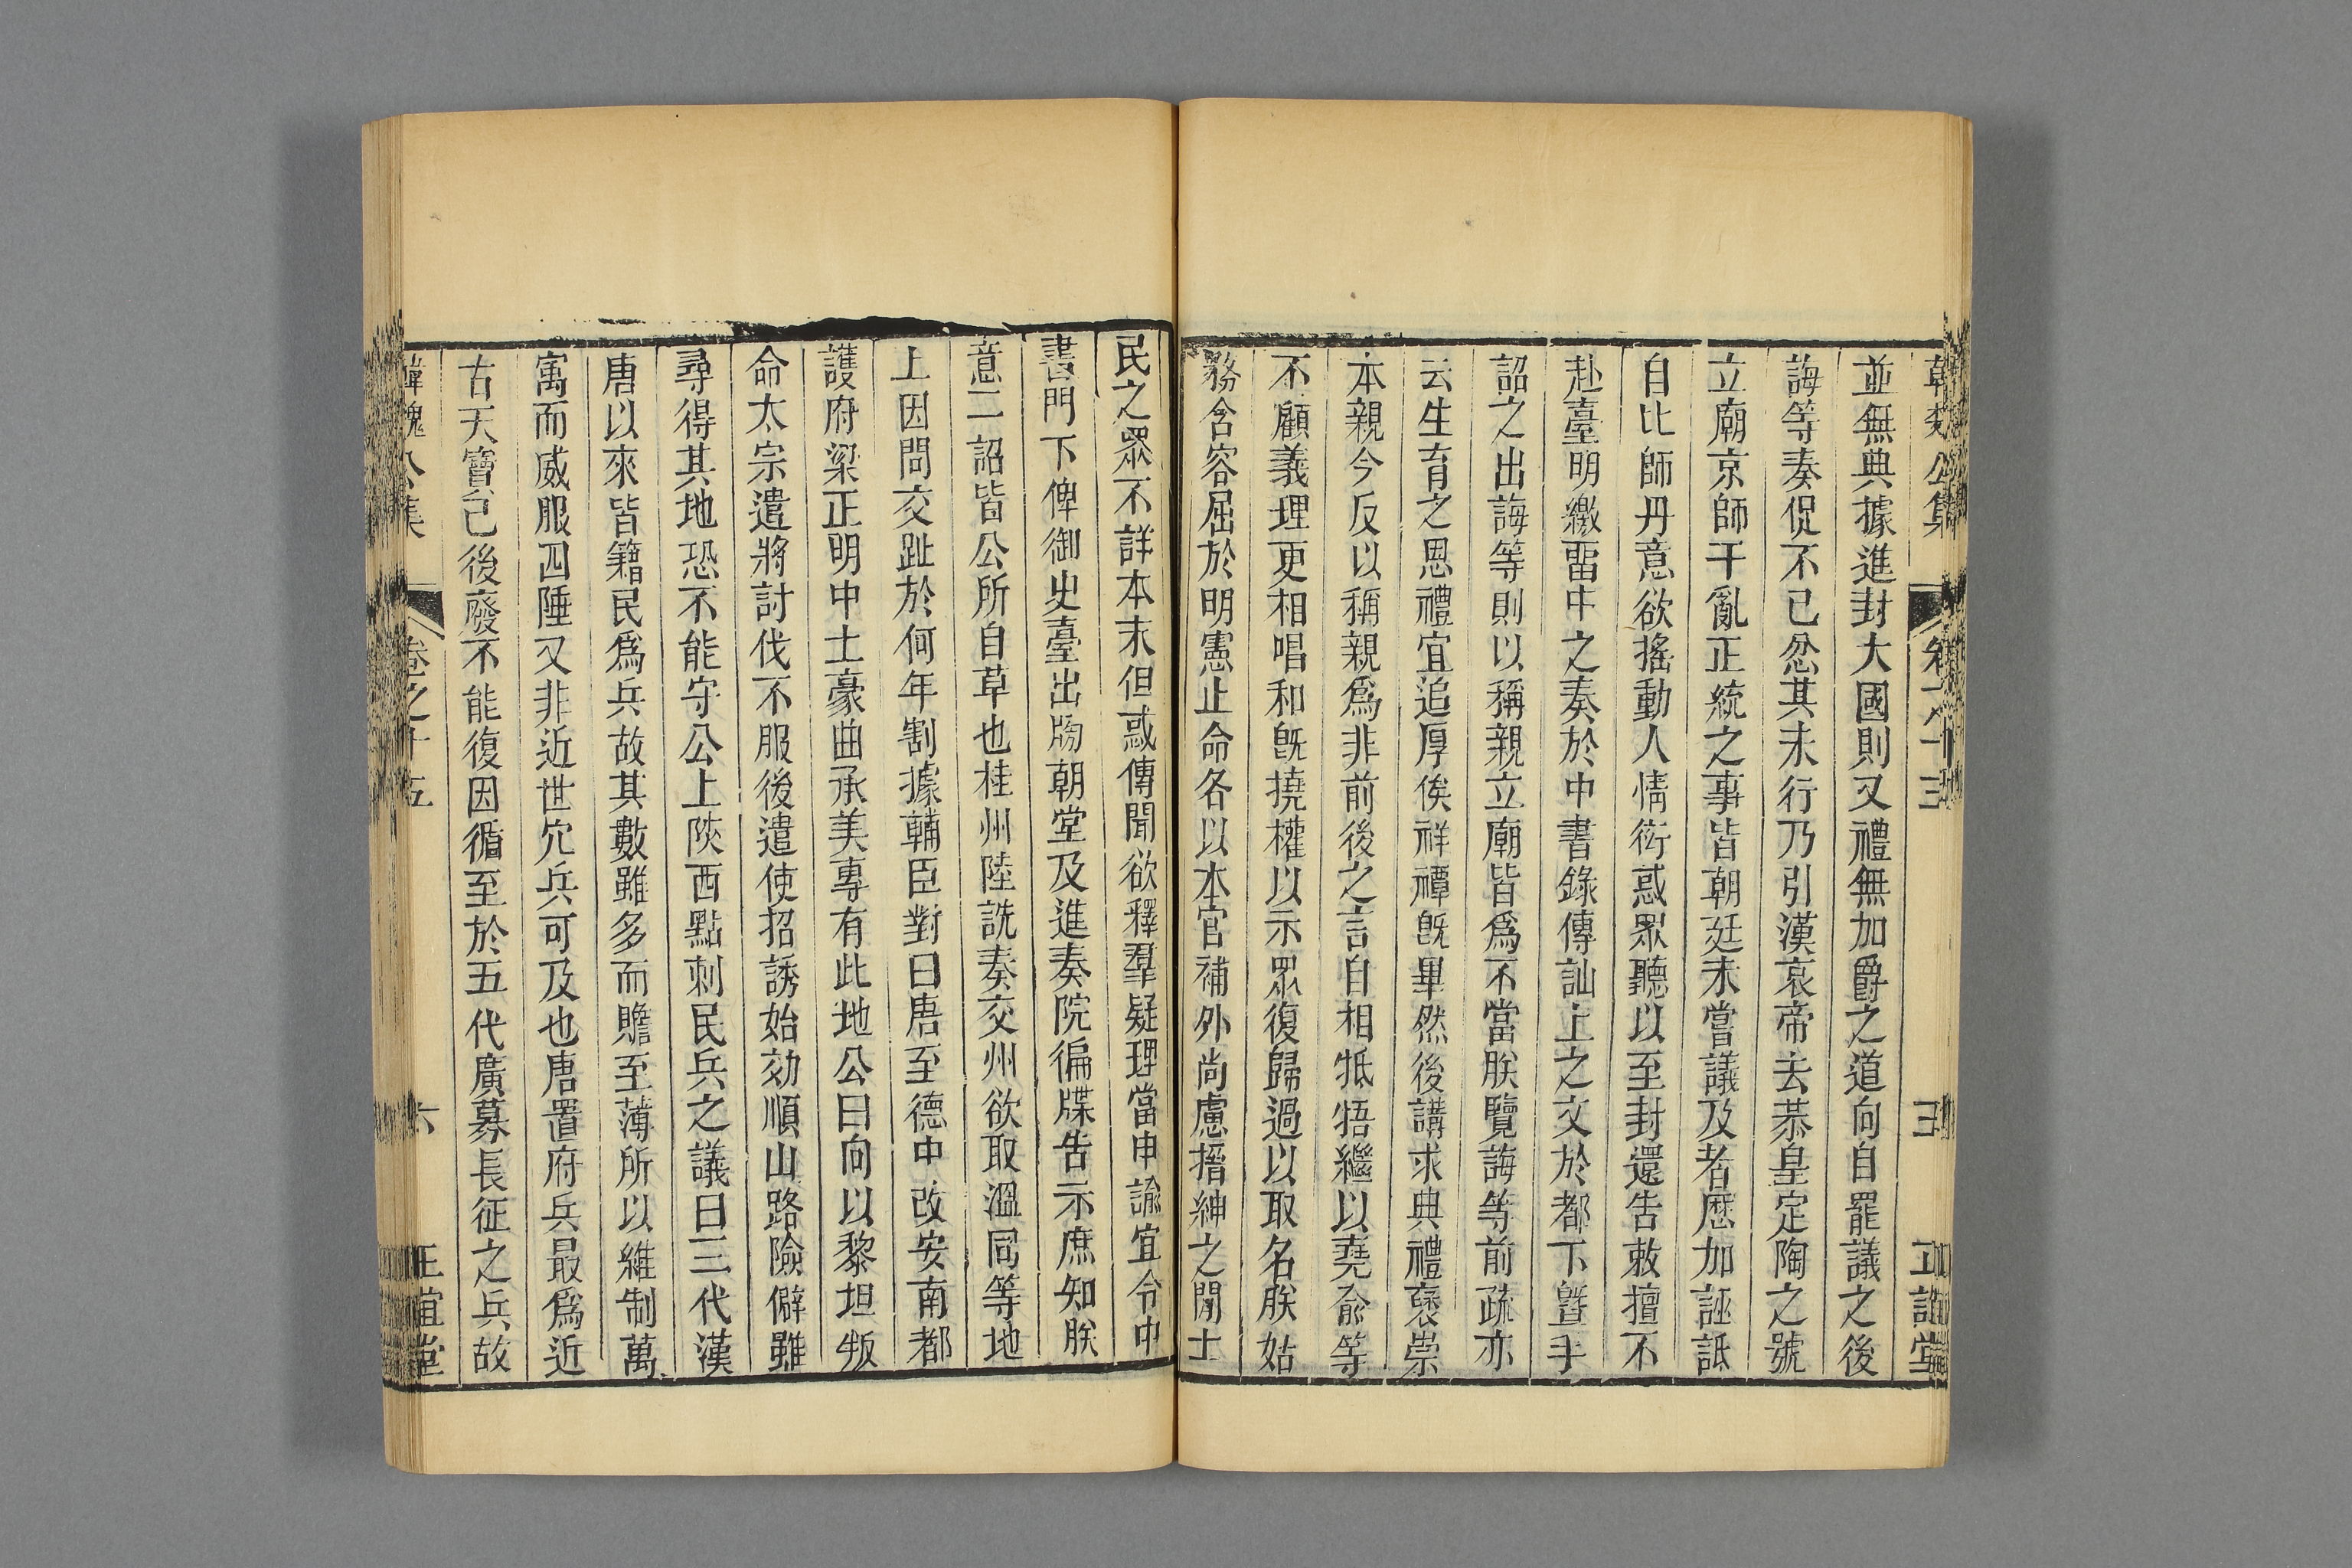 並無典據進封大國則又禮無加爵之道向自罷議之後
誨等奏促不已忿其未行乃引漢哀帝去恭皇定陶之號
立廟京師干亂正統之事皆朝廷未嘗議及者歷加誣詆
自比師丹意欲搖動人情衒惑眾聽以至封還告敕擅不
赴臺明繳畱中之奏於中書錄傳訕上之文於都下曁手
詔之出誨等則以稱親立廟皆爲不當朕覽誨等前疏亦
云生育之恩禮宜追厚俟祥禫旣畢然後講求典禮褒崇
本親今反以稱親爲非前後之言自相牴牾繼以堯俞等
不顧義理更相唱和旣撓權以示眾復歸過以取名朕姑
務含容屈於明憲止命各以本官補外尚慮搢紳之閒士
民之眾不詳本末但惑傳聞欲釋羣疑理當申諭宜令中
書門下俾御史臺出牓朝堂及進奏院徧牒告示庶知朕
意二詔皆公所自草也桂州陸詵奏交州欲取溫同等地
上因問交趾於何年割據輔臣對曰唐至德中改安南都
護府梁正明中土豪曲承美專有此地公曰向以黎坦叛
命太宗遣將討伐不服後遣使招誘始効順山路險僻雖
尋得其地恐不能守公上陝西點刺民兵之議曰三代漢
唐以來皆籍民爲兵故其數雖多而贍至薄所以維制萬
寓而威服四陲又非近世冗兵可及也唐置府兵最爲近
古天寶已後廢不能復因循至於五代廣募長征之兵故
韓魏公集 卷之十五 六 正誼堂